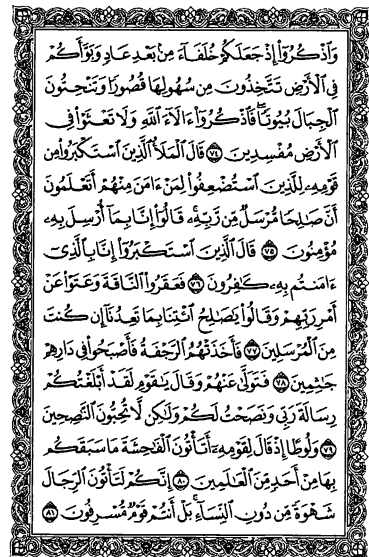 وَٱذْكُرُوٓا۟ إِذْ جَعَلَكُمْ خُلَفَآءَ مِنۢ بَعْدِ عَادٍ وَبَوَّأَكُمْ
فِى ٱلْأَرْضِ تَتَّخِذُونَ مِن سُهُولِهَا قُصُورًا وَتَنْحِتُونَ
ٱلْجِبَالَ بُيُوتًا ۖ فَٱذْكُرُوٓا۟ ءَالَآءَ ٱللَّهِ وَلَا تَعْثَوْا۟ فِى
ٱلْأَرْضِ مُفْسِدِينَ ٧٤ قَالَ ٱلْمَلَأُ ٱلَّذِينَ ٱسْتَكْبَرُوا۟ مِن
قَوْمِهِۦ لِلَّذِينَ ٱسْتُضْعِفُوا۟ لِمَنْ ءَامَنَ مِنْهُمْ أَتَعْلَمُونَ
أَنَّ صَٰلِحًا مُّرْسَلٌ مِّن رَّبِّهِۦ ۚ قَالُوٓا۟ إِنَّا بِمَآ أُرْسِلَ بِهِۦ
مُؤْمِنُونَ ٧٥ قَالَ ٱلَّذِينَ ٱسْتَكْبَرُوٓا۟ إِنَّا بِٱلَّذِىٓ
ءَامَنتُم بِهِۦ كَٰفِرُونَ ٧٦ فَعَقَرُوا۟ ٱلنَّاقَةَ وَعَتَوْا۟ عَنْ
أَمْرِ رَبِّهِمْ وَقَالُوا۟ يَٰصَٰلِحُ ٱئْتِنَا بِمَا تَعِدُنَآ إِن كُنتَ
مِنَ ٱلْمُرْسَلِينَ ٧٧ فَأَخَذَتْهُمُ ٱلرَّجْفَةُ فَأَصْبَحُوا۟ فِى دَارِهِمْ
جَٰثِمِينَ ٧٨ فَتَوَلَّىٰ عَنْهُمْ وَقَالَ يَٰقَوْمِ لَقَدْ أَبْلَغْتُكُمْ
رِسَالَةَ رَبِّى وَنَصَحْتُ لَكُمْ وَلَٰكِن لَّا تُحِبُّونَ ٱلنَّٰصِحِينَ
٧٩ وَلُوطًا إِذْ قَالَ لِقَوْمِهِۦٓ أَتَأْتُونَ ٱلْفَٰحِشَةَ مَا سَبَقَكُم
بِهَا مِنْ أَحَدٍ مِّنَ ٱلْعَٰلَمِينَ ٨٠ إِنَّكُمْ لَتَأْتُونَ ٱلرِّجَالَ
شَهْوَةً مِّن دُونِ ٱلنِّسَآءِ ۚ بَلْ أَنتُمْ قَوْمٌ مُّسْرِفُونَ ٨١